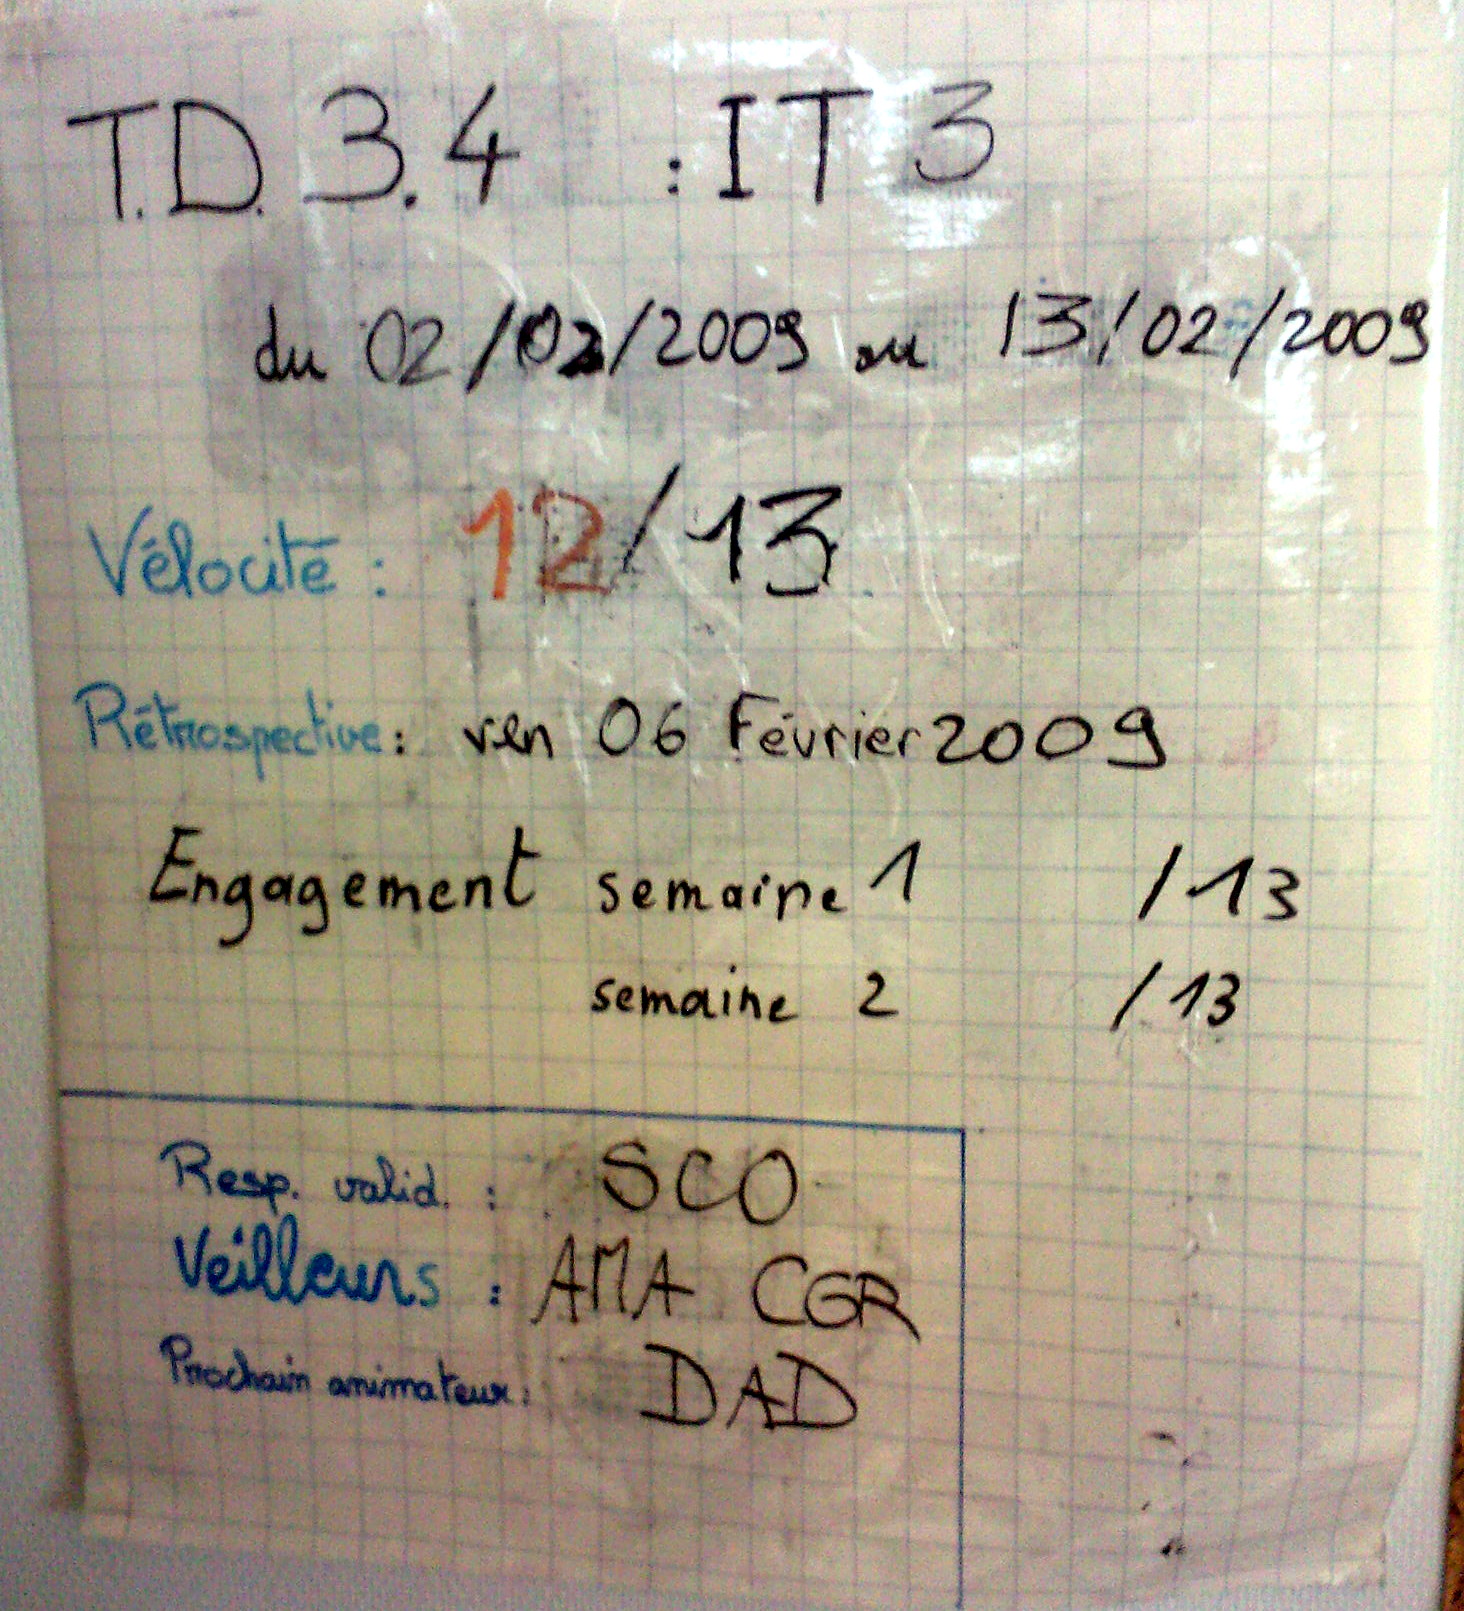 T.D. 3.4 : IT 3
du 02/02/2009 au 13/02/2009
Vélocité : 12/13
Rétrospective : ven 06 Février 2009
Engagement semaine 1 /13
semaine 2 /13
Resp. valid. : SCO
Veilleurs : AMA CGR
Prochain animateur : DAD